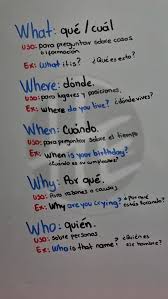 What: qué / cuál
uso: para preguntar sobre cosas
o información
Ex: What it is? ¿Qué es esto?
Where: dónde.
uso: para lugares y posiciones.
Ex: where do you live? ¿dónde vives?
When: Cuándo.
uso: para preguntar sobre el tiempo
Ex: when is your birthday?
¿Cuándo es tu cumpleaños?
Why: Por qué.
uso: Para razones o causas
Ex: Why are you crying? ¿Por qué
estás llorando?
Who: quién.
uso: sobre personas
Ex: Who is that name? ¿Quién es
ese nombre?